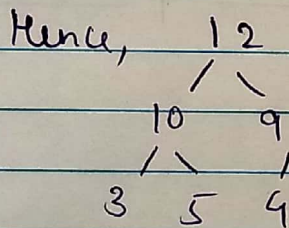 Hence, 12
10 9
3 5 4